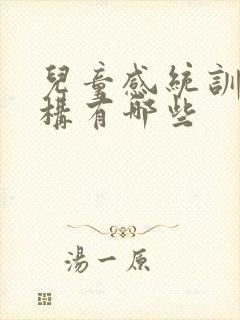 兒童感統訓
構有哪些
湯一原